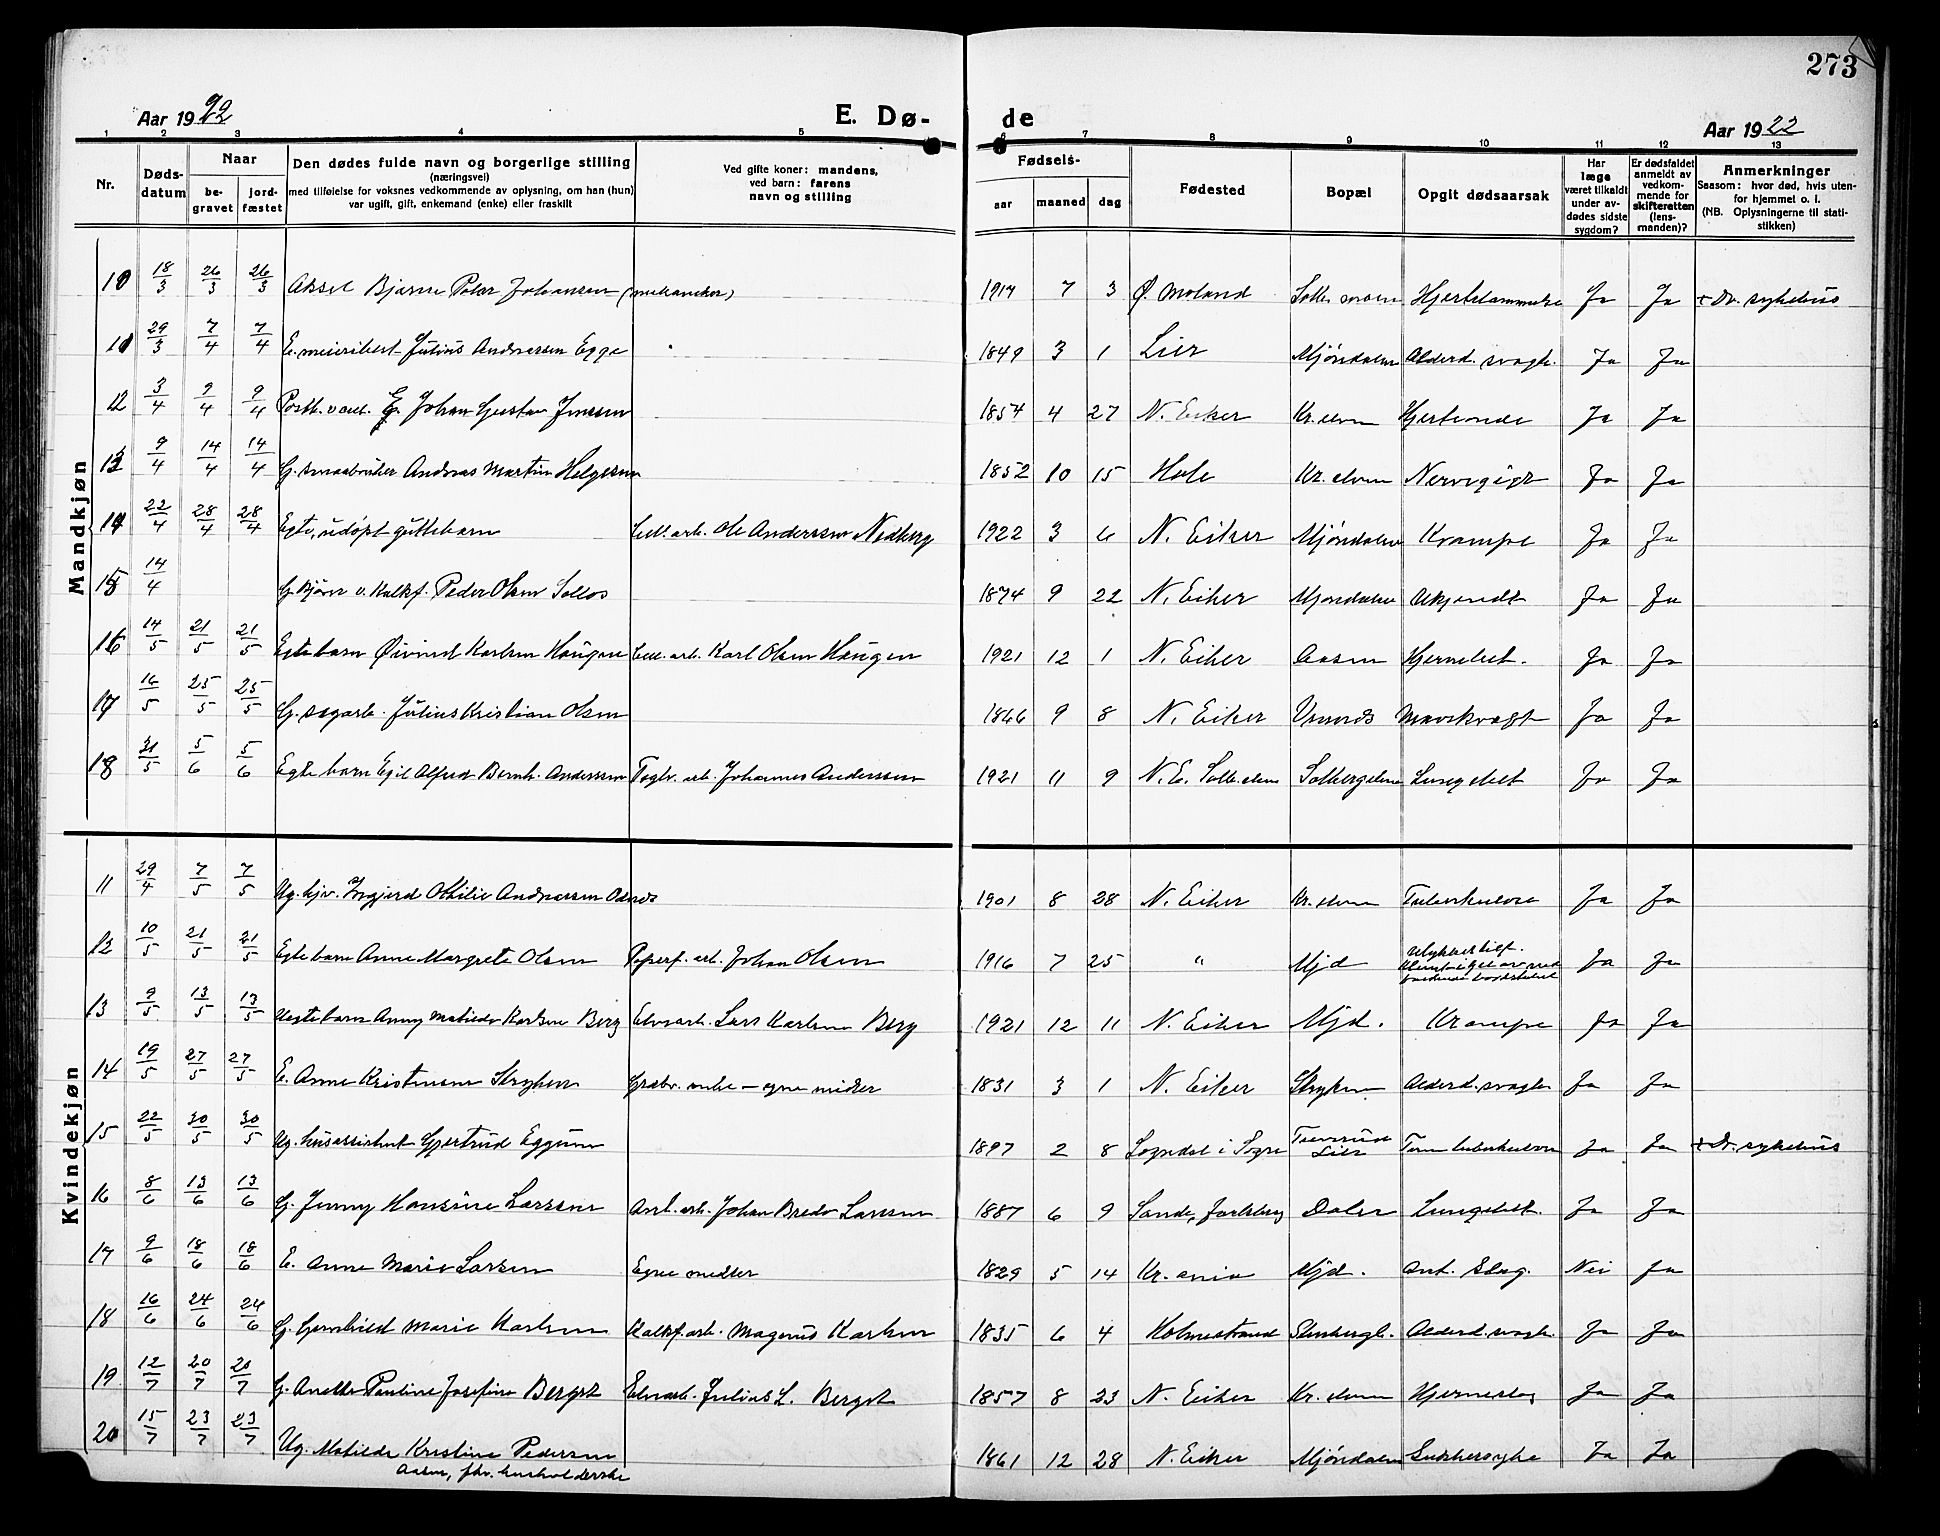 273
Aar 1922
E. Dø-
de
Aar 1922
1 2 3 4 5 6 7 8 9 10 11 12 13
Nr.
Døds-
datum
Naar
be-
gravet
jord-
fæstet
Den dødes fulde navn og borgerlige stilling
(næringsvei)
med tilføielse for voksnes vedkommende av oplysning, om han (hun)
var ugift, gift, enkemand (enke) eller fraskilt
Ved gifte koner: mandens,
ved barn: farens
navn og stilling
Fødsels-
aar maaned dag
Fødested
Bopæl
Opgit dødsaarsak
Har
læge
været tilkaldt
under av-
dødes sidste
sygdom?
Er dødsfaldet
anmeldt av
vedkom-
mende for
skifteretten
(lens-
manden)?
Anmerkninger
Saasom: hvor død, hvis uten-
for hjemmet o. l.
(NB. Oplysningerne til stati-
stikken)
Mandkjøn
10 18/3 26/3 26/3 Aksel Bjarne Peder Johansen (mekaniker) 1917 7 3 Ø. Moland Hjertelammelse Ja Ja + Dr. sykehus
11 29/3 7/4 7/4 E. meieribest. Julius Andreassen Egge 1849 3 1 Lier Mjøndalen Alderd. svagh. Ja Ja
12 3/4 9/4 9/4 E. Johan Gustav Jenssen 1854 4 27 N. Eiker Kr. elven Hjerteonde Ja Ja
13 9/4 14/4 14/4 G. smaabruker Andreas Martin Helgesen 1852 10 15 Hole Kr. elven Nervegigt Ja Ja
14 22/4 28/4 28/4 Egte, udøpt guttebarn Cell. arb. Ole Anderssen Nedberg 1922 3 6 N. Eiker Mjøndalen Krampe Ja Ja
15 14/4 G. kjører v. Kalkf. Peder Olsen Solløs 1874 9 22 N. Eiker Mjøndalen Ukjendt Ja Ja
16 14/5 21/5 21/5 Egte barn Øivind Karlsen Haugen Cell. arb. Karl Olsen Haugen 1921 12 1 N. Eiker Aasen Hjernebet. Ja Ja
17 16/5 25/5 25/5 G. sagarb. Julius Kristian Olsen 1866 9 8 N. Eiker Mavekræft Ja Ja
18 31/5 5/6 5/6 Egte barn Egil Alfred Bernh. Anderssen Teglv. arb. Johannes Anderssen 1921 11 9 N. E. Solb. elven Solbergelven Lungebet Ja Ja
Kvindekjøn
11 29/4 7/5 7/5 Ug. hjv. Ingjerd Othilie Andreassen 1901 8 28 N. Eiker Kr. elven Tuberkulose Ja Ja
12 10/5 21/5 21/5 Egte barn Anne Margrete Olsen Papirf. arb. Johan Olsen 1916 7 25 " Mjd Ulykkestilf. Ja Ja
13 9/5 13/5 13/5 Uegte barn Anny Matilde Karlsen Berg Elvearb. Lars Karlsen Berg 1921 12 11 N. Eiker Mjd. Krampe Ja Ja
14 19/5 27/5 27/5 E. Anne Kristensen Stryken Gaabr. enke – egne midler 1831 3 1 N. Eiker Stryken Alderd. svagh. Ja Ja
15 22/5 30/5 30/5 Ug. husassistent Gjertrud Eggum 1897 2 8 Sogndal i Sogn Lier Tarm tuberkulose Ja Ja + Dr. sykehus
16 8/6 13/6 13/6 G. Jenny Hansine Larssen Anl. arb. Johan Bredo Larssen 1887 6 9 Sande, Jarlsberg Dalen Lungebet. Ja Ja
17 9/6 18/6 18/6 E. Anne Marie Larsen Egne midler 1829 5 14 Kr. ania Mjd. Ant. Slag. Nei Ja
18 16/6 24/6 24/6 G. Gunhild Marie Karlsen Kalkf. arb. Magnus Karlsen 1835 6 4 Holmestrand Stenbergl. Alderd. svagh. Ja Ja
19 12/7 20/7 20/7 G. Anette Pauline Josefine Bergst Elvearb. Julius L. Bergst 1857 8 23 N. Eiker Kr. elven Hjerneslag Ja Ja
20 15/7 23/7 23/7 Ug. Matilde Kristine Pedersen 1861 12 28 N. Eiker Mjøndalen Sukkersyke Ja Ja
Aasen, fhv. husholderske